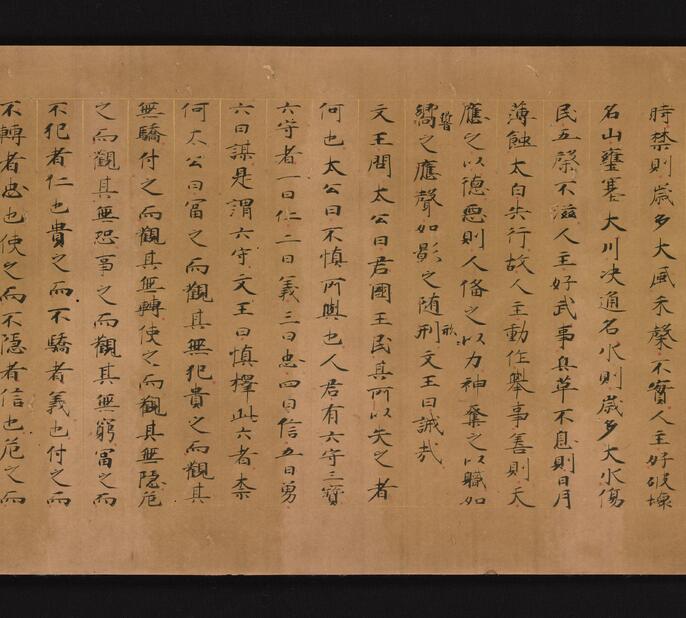 時禁則歳多大風禾槩不實人主好破壊
名山壅塞大川决通名水則歳多大水傷
民五槩不滋人主好武事兵革不息則日月
薄蝕太白失行故人主動作舉事善則天
應之以德惡則人備之以力神奪之以職如
響之應聲如影之随形文王曰誠哉
文王問太公曰君國主民其所以失之者
何也太公曰不慎所與也人君有六守三寳
六守者一曰仁二曰義三曰忠四曰信五曰勇
六曰謀是謂六守文王曰慎擇此六者柰
何太公曰冨之而觀其無犯貴之而觀其
無驕付之而觀其無轉使之而觀其無隠危
之而觀其無恐事之而觀其無窮冨之而
不犯者仁也貴之而不驕者義也付之而
不轉者忠也使之而不隠者信也危之而